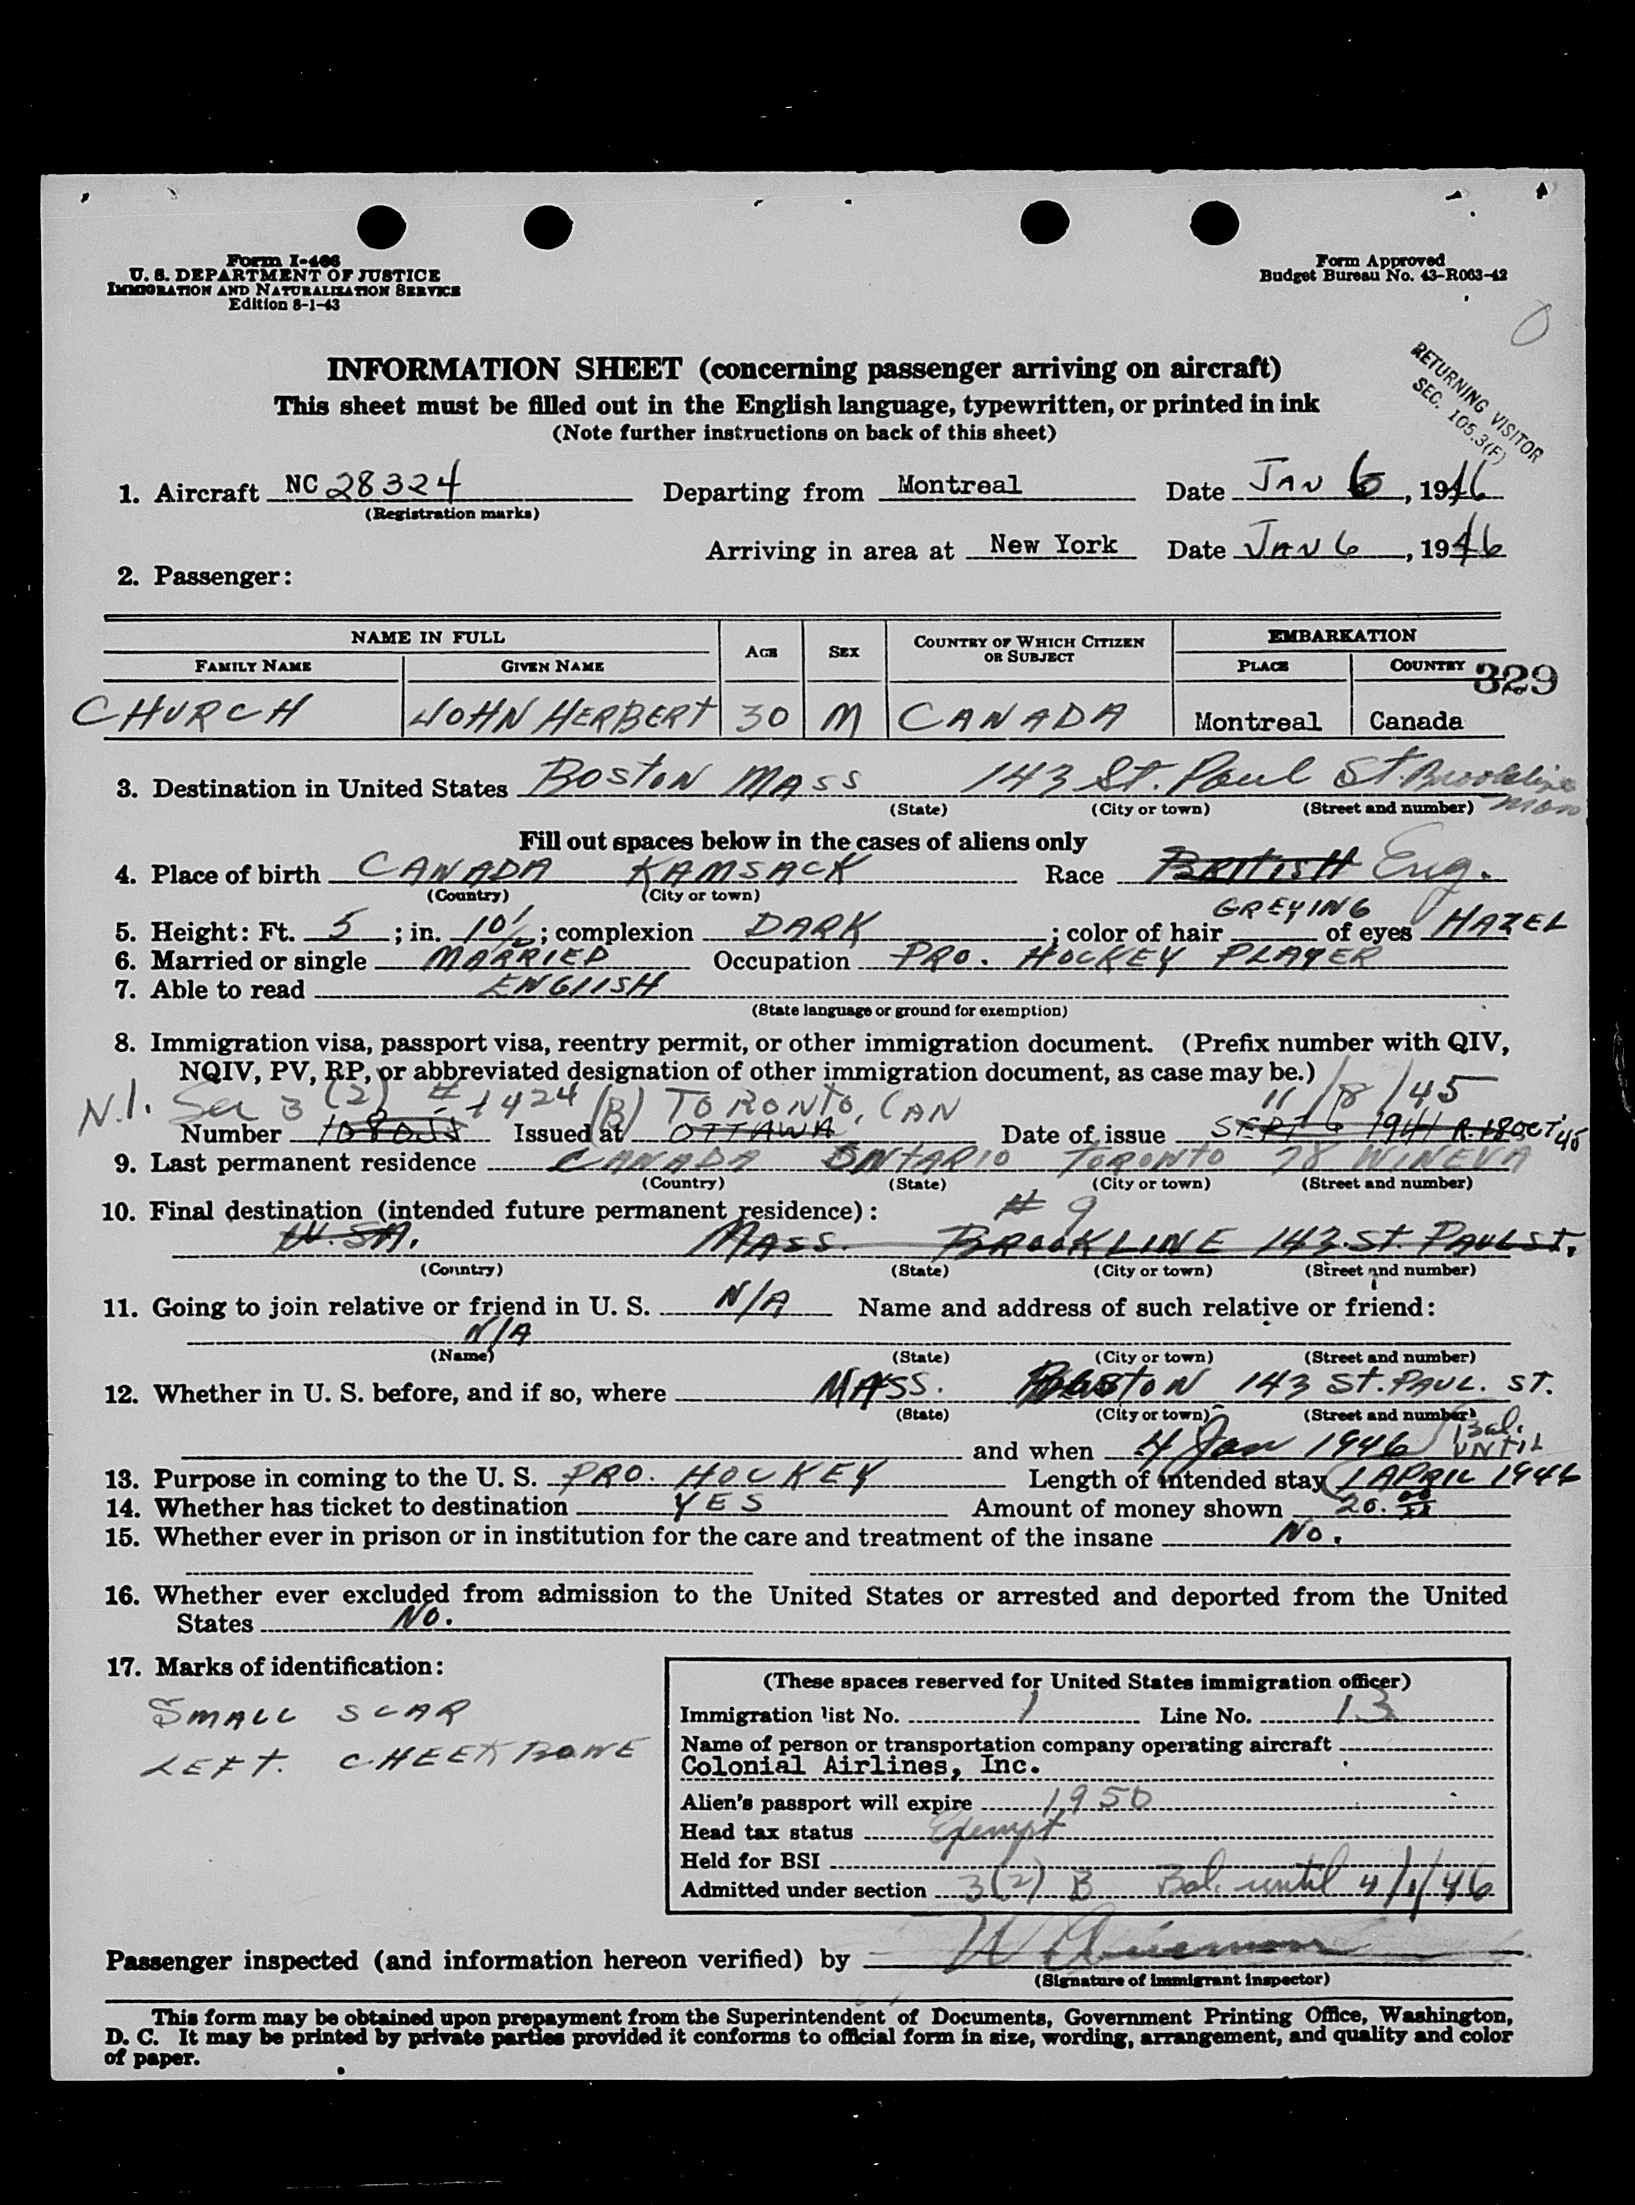 Form I-466
U. S. DEPARTMENT OF JUSTICE
IMMIGRATION AND NATURALIZATION SERVICE
Edition 8-1-43
Form Approved
Budget Bureau No. 43-R063-42
INFORMATION SHEET (concerning passenger arriving on aircraft)
This sheet must be filled out in the English language, typewritten, or printed in ink
(Note further instructions on back of this sheet)
RETURNING VISITOR
SEC. 105.3(F)
1. Aircraft NC 28324 Departing from Montreal Date JAN 6, 1946
(Registration marks)
Arriving in area at New York Date JAN 6, 1946
2. Passenger:
NAME IN FULL AGE SEX COUNTRY OF WHICH CITIZEN OR SUBJECT EMBARKATION
FAMILY NAME GIVEN NAME PLACE COUNTRY 329
CHURCH JOHN HERBERT 30 M CANADA Montreal Canada
3. Destination in United States BOSTON MASS 143 St. Paul St Brookline
(State) (City or town) (Street and number)
Fill out spaces below in the cases of aliens only
4. Place of birth CANADA KAMSACK Race BRITISH Eng.
(Country) (City or town)
5. Height: Ft. 5; in. 10½; complexion DARK; color of hair GREYING of eyes HAZEL
6. Married or single MARRIED Occupation PRO. HOCKEY PLAYER
7. Able to read ENGLISH
(State language or ground for exemption)
8. Immigration visa, passport visa, reentry permit, or other immigration document. (Prefix number with QIV,
NQIV, PV, RP, or abbreviated designation of other immigration document, as case may be.)
N.I. Sec 3 (2) # 1424 (B) TORONTO, CAN 11/8/45
Number Issued at OTTAWA Date of issue SEPT 6 1944 R. 18 OCT '45
9. Last permanent residence CANADA ONTARIO TORONTO 78 WINEVA
(Country) (State) (City or town) (Street and number)
10. Final destination (intended future permanent residence): # 9
U.S.A. MASS. BROOKLINE 143 ST. PAUL ST.
(Country) (State) (City or town) (Street and number)
11. Going to join relative or friend in U. S. N/A Name and address of such relative or friend:
N/A
(Name) (State) (City or town) (Street and number)
12. Whether in U. S. before, and if so, where MASS. BOSTON 143 ST. PAUL. ST.
(State) (City or town) (Street and number)
and when 4 Jan 1946 Bal.
13. Purpose in coming to the U. S. PRO. HOCKEY Length of intended stay UNTIL 1 APRIL 1946
14. Whether has ticket to destination YES Amount of money shown 20.
15. Whether ever in prison or in institution for the care and treatment of the insane NO.
16. Whether ever excluded from admission to the United States or arrested and deported from the United
States NO.
17. Marks of identification:
SMALL SCAR
LEFT. CHEEK BONE
(These spaces reserved for United States immigration officer)
Immigration list No. 1 Line No. 13
Name of person or transportation company operating aircraft
Colonial Airlines, Inc.
Alien's passport will expire 1950
Head tax status Exempt
Held for BSI
Admitted under section 3(2) B Bal. until 4/1/46
Passenger inspected (and information hereon verified) by
(Signature of immigrant inspector)
This form may be obtained upon prepayment from the Superintendent of Documents, Government Printing Office, Washington,
D. C. It may be printed by private parties provided it conforms to official form in size, wording, arrangement, and quality and color
of paper.